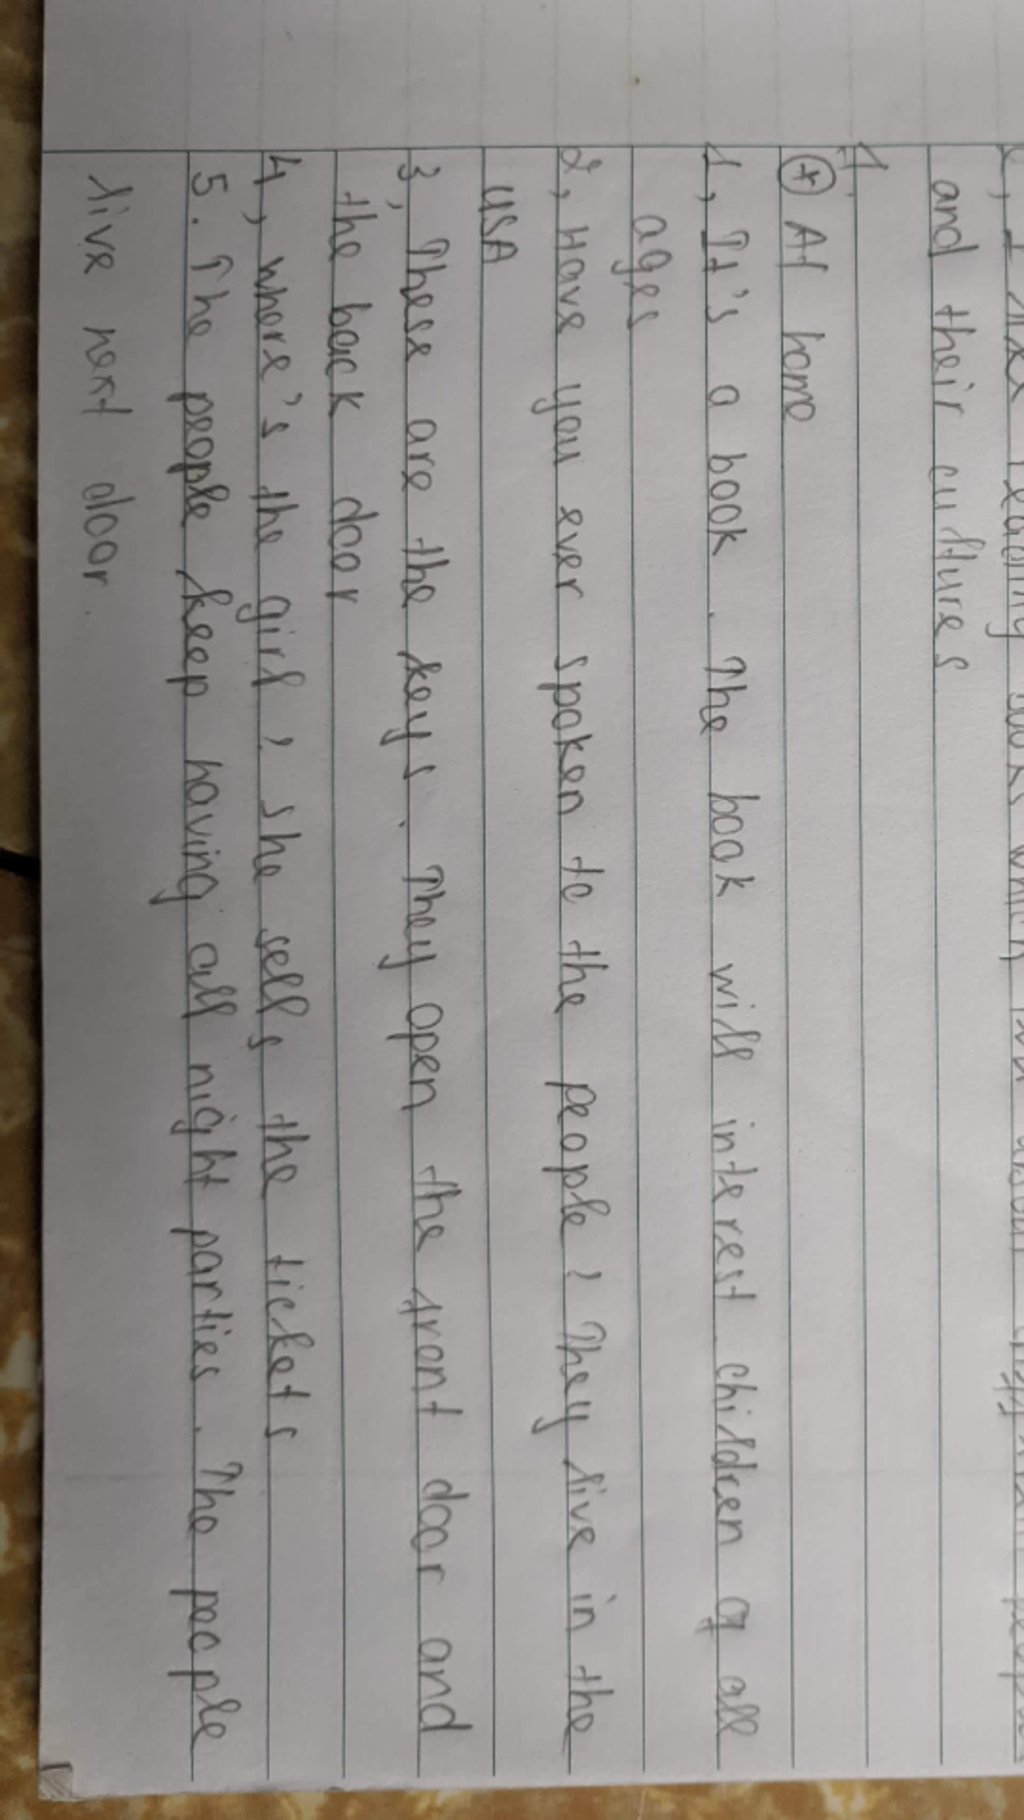 and their cultures
1.
* At home
1, It's a book. The book will interest children of all
ages
2, Have you ever spoken to the people? They live in the
USA
3, These are the keys. They open the front door and
the back door
4, where's the girl? she sells the tickets
5. The people keep having all night parties. The people
live next door.